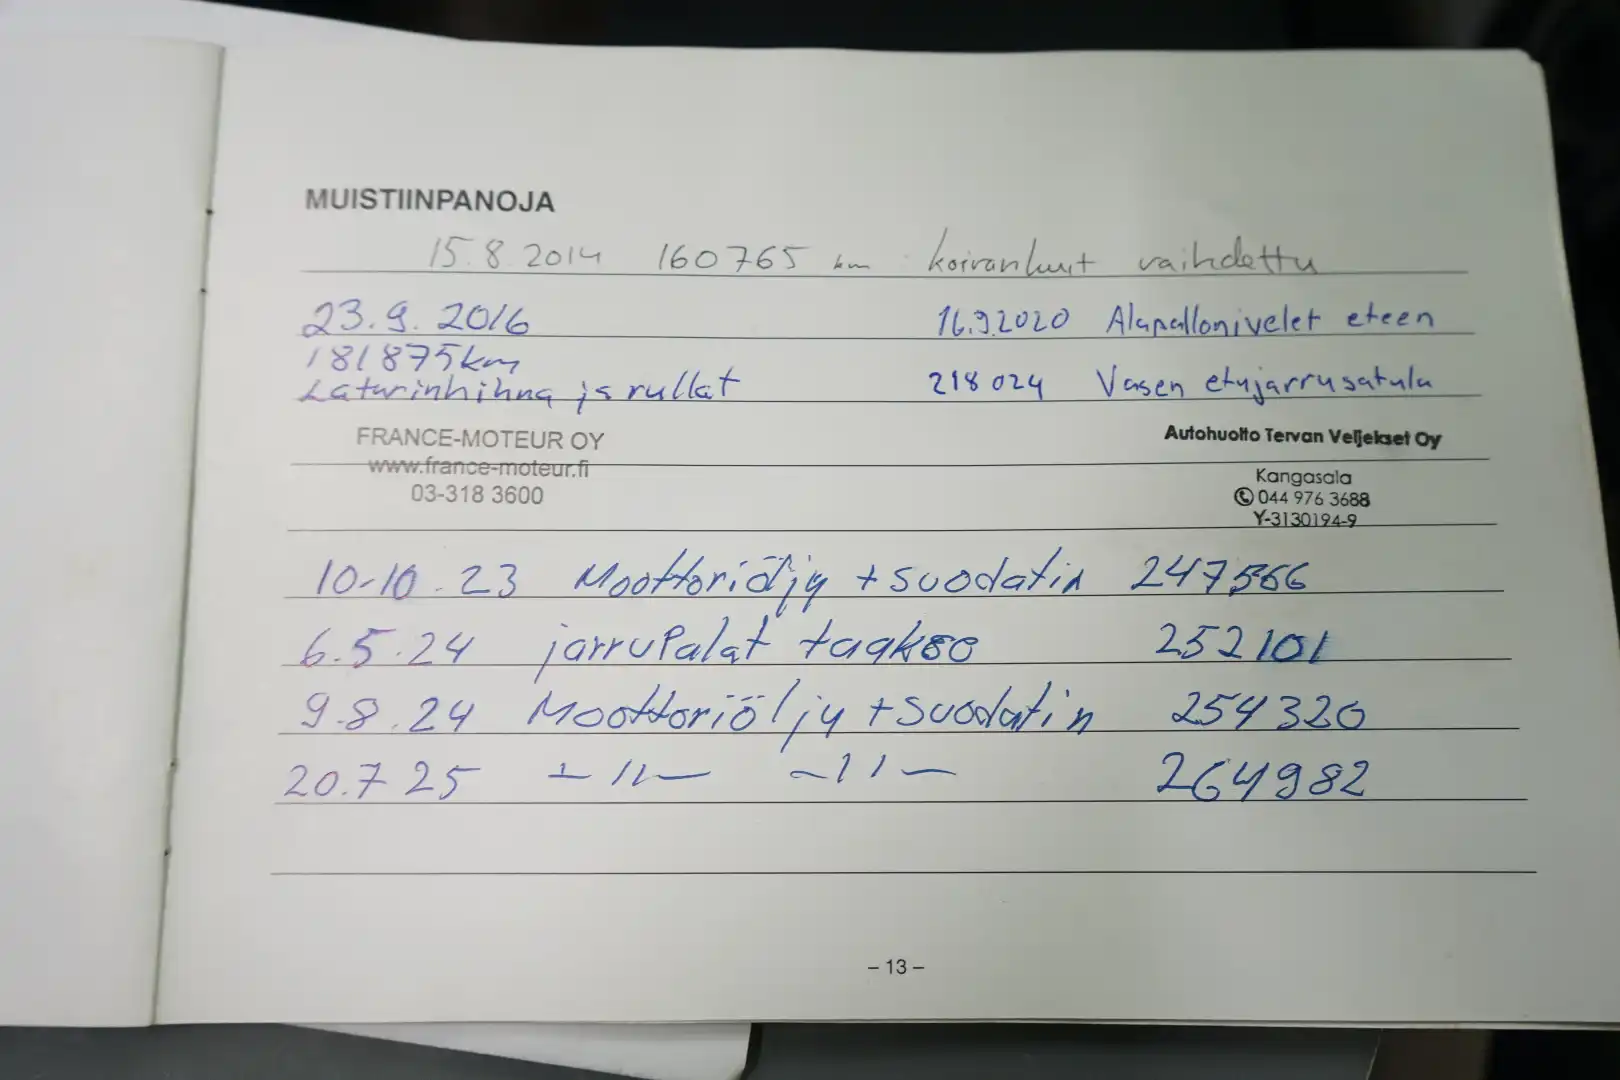 MUISTIINPANOJA
15.8.2014 160765 km koiranluut vaihdettu
23.9.2016
181875km
Laturinhihna ja rullat
FRANCE-MOTEUR OY
www.france-moteur.fi
03-318 3600
16.9.2020 Alapallonivelet eteen
218 024 Vasen etujarrusatula
Autohuolto Tervan Veljekset Oy
Kangasala
044 976 3688
Y-3130194-9
10-10.23 Moottoriöljy + suodatin 247566
6.5.24 jarrupalat taakse 252101
9.8.24 Moottoriöljy + suodatin 254320
20.7 25 —11— —11— 264982
– 13 –